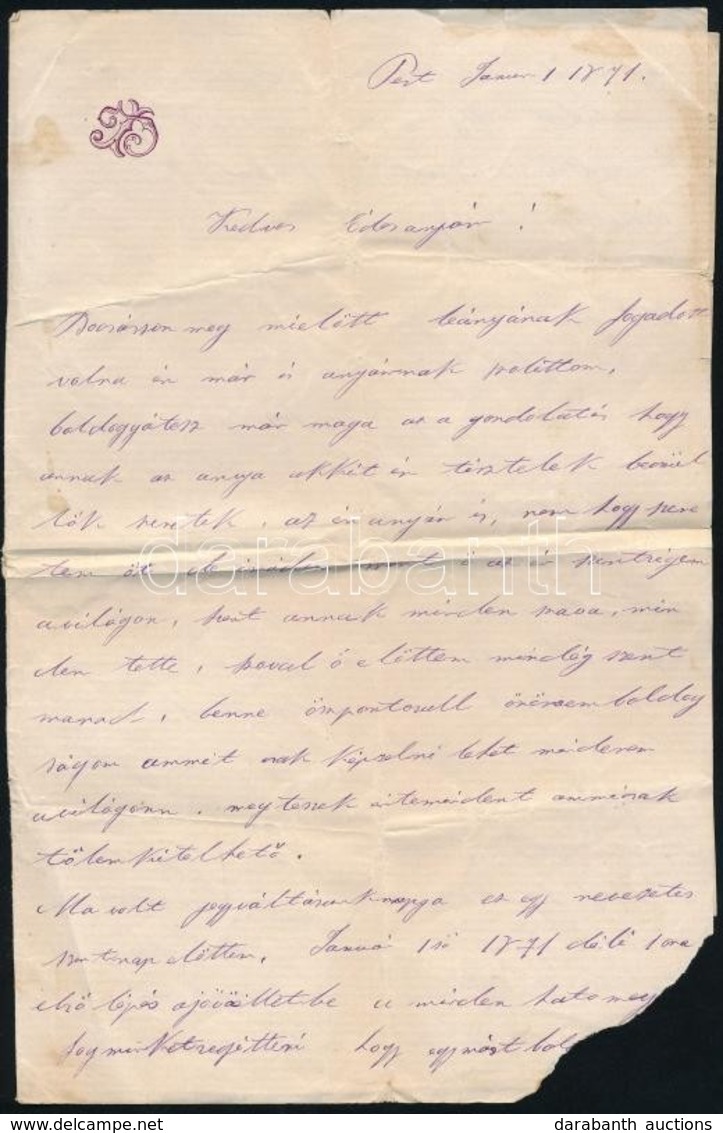 Pest Januar 1 1871.
Kedves Édesanyám !
Bocsásson meg mielött leányának fogadott
volna én már is anyámnak szolittom,
boldoggátesz már maga az a gondolatis hogy
annak az anya akkit én tisztelek becsül
lök szeretek, az én anyám is, nem hogy szere
tem öt de imádom mert ö az én mentségem
avilágon, hert annak minden szava, min
den tette, szoval ő elöttem mindég szent
marad, benne öszpontosull örömem boldog
ságom ammit csak képzelni lehet mindenem
avilágonn. megteszek érte mindent amminak
tőlem kitelhető.
Ma volt jegyváltásunk napja ez egy nevezetes
szentnap elöttem. Januá 1sö 1871 déli 1 ora
elsö lépés ajövöéletbe a minden hato meg
fog minket segitteni hogy egymást bol
darabanth
darabanth auctions
www.darabanth.com